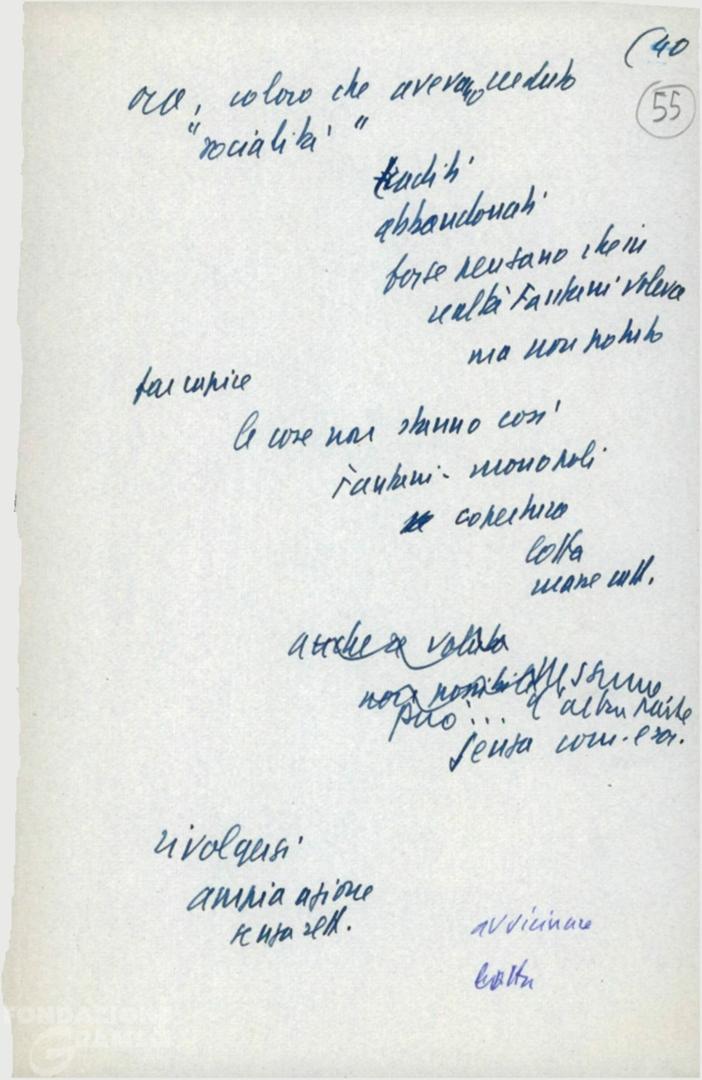 (40
55
ora, coloro che avevano veduto
"socialità"
traditi
abbandonati
forse pensano che in
realtà Fanfani voleva
ma non potuto
far capire
le cose non stanno così
Fanfani - monopoli
copertura
lotta
masse catt.
anche se voluto
non possibile Nessuno
può ... d'altra parte
senza com.
rivolgersi
ampia azione
senza sett.
avvicinare
lotta
FONDAZIONE
GRAMSCI